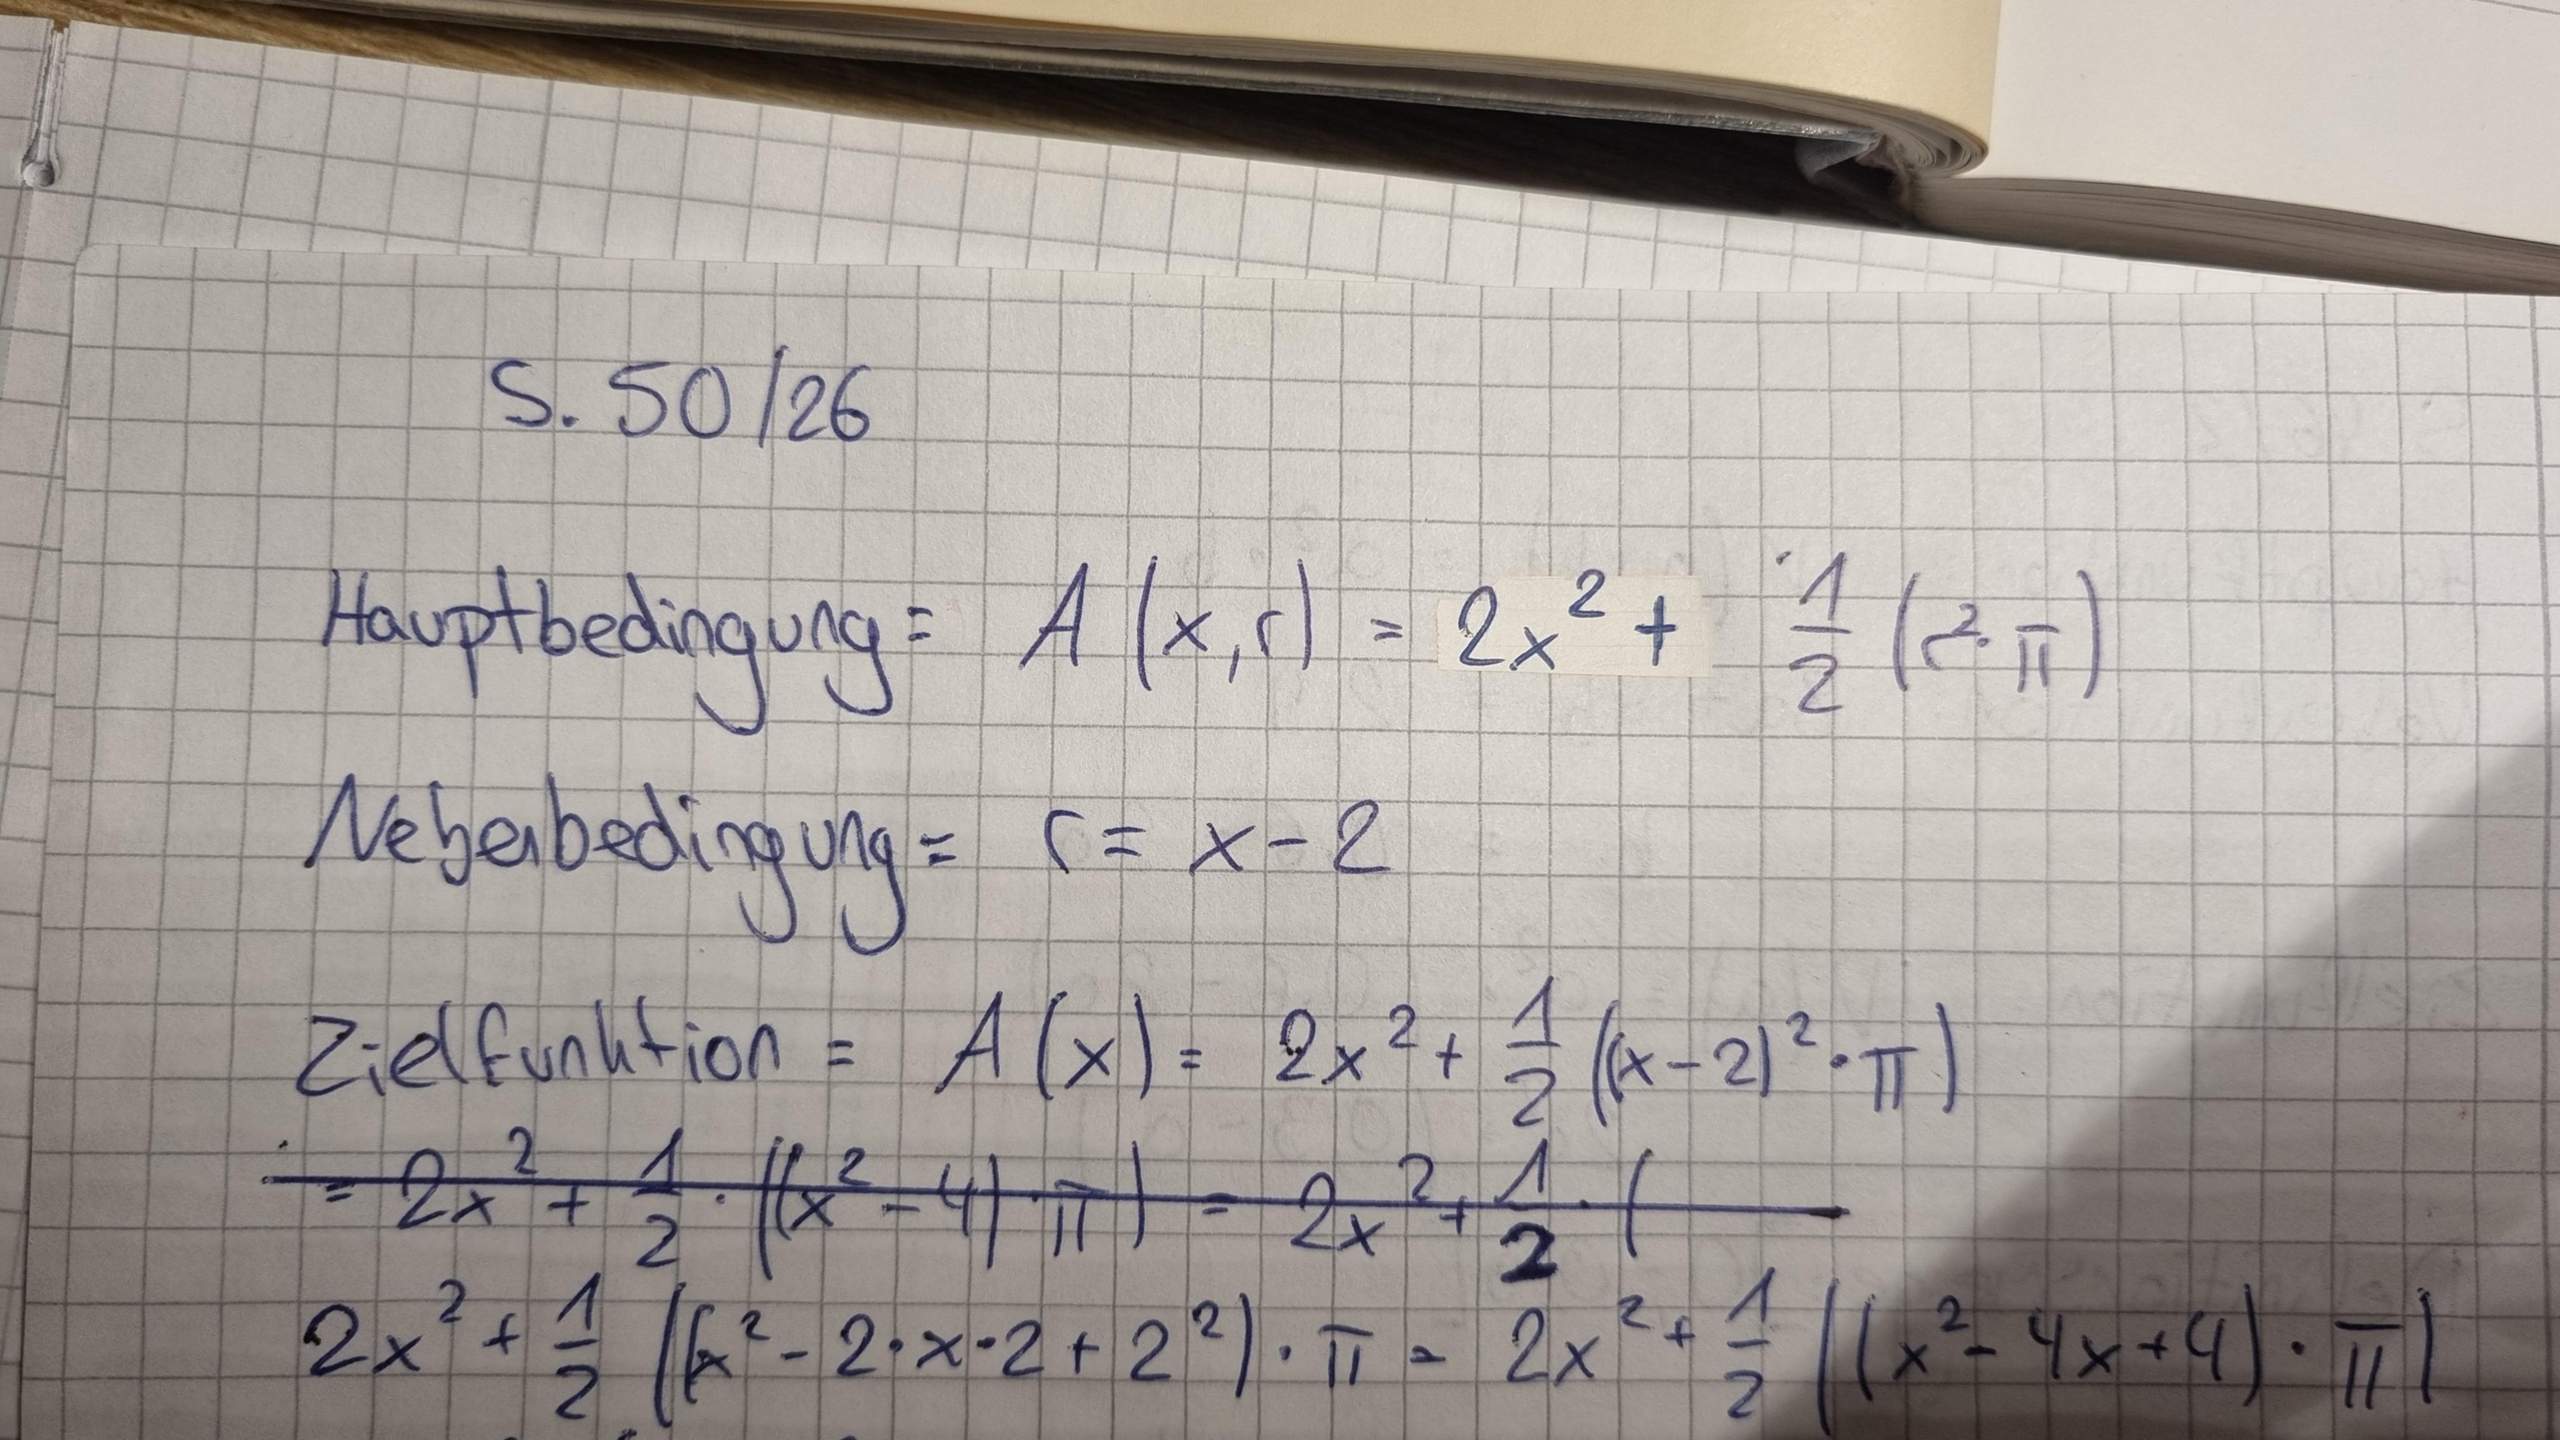 S. 50/26
Hauptbedingung = A(x,r) = 2x² + 1/2 (r²·π)
Nebenbedingung = r = x-2
Zielfunktion = A(x) = 2x² + 1/2 ((x-2)²·π)
= 2x² + 1/2 · ((x²-4)·π) = 2x² + 1/2 · (
2x² + 1/2 ((x²-2·x·2+2²)·π = 2x² + 1/2 ((x²-4x+4)·π)